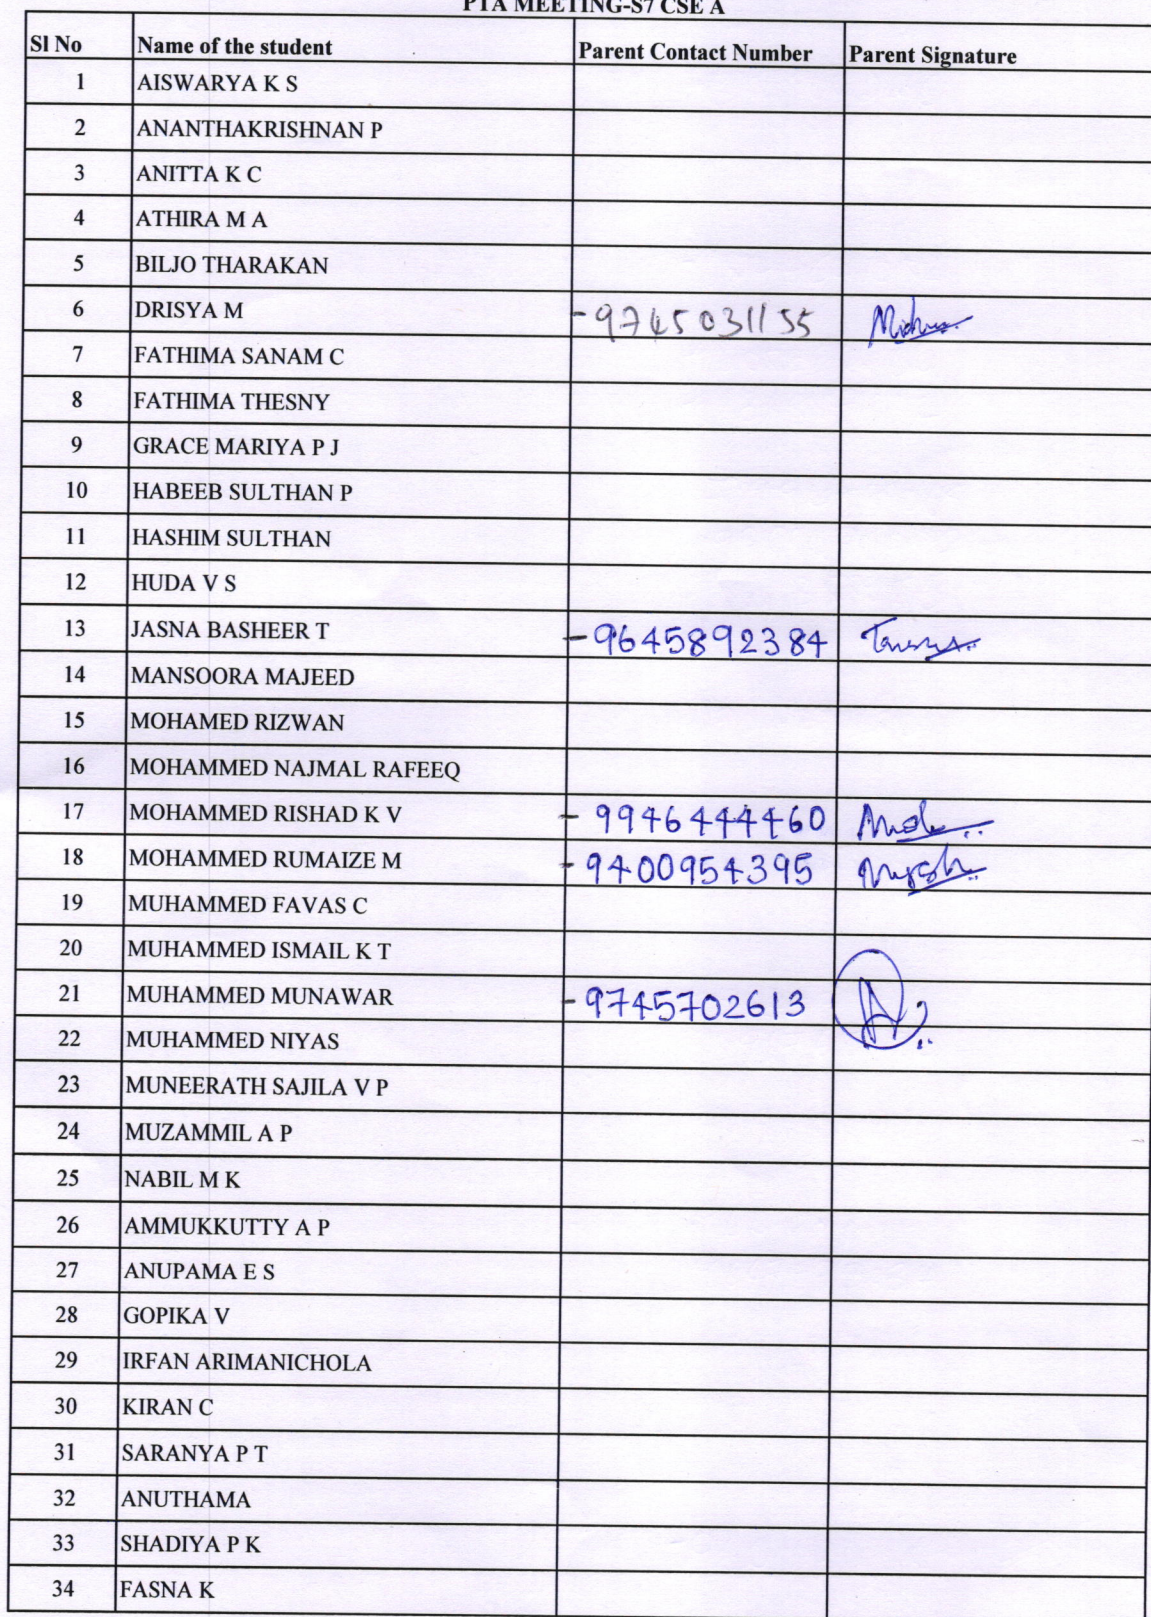 PTA MEETING-S7 CSE A
Sl No Name of the student Parent Contact Number Parent Signature
1 AISWARYA K S
2 ANANTHAKRISHNAN P
3 ANITTA K C
4 ATHIRA M A
5 BILJO THARAKAN
6 DRISYA M -9745031155
7 FATHIMA SANAM C
8 FATHIMA THESNY
9 GRACE MARIYA P J
10 HABEEB SULTHAN P
11 HASHIM SULTHAN
12 HUDA V S
13 JASNA BASHEER T -9645892384
14 MANSOORA MAJEED
15 MOHAMED RIZWAN
16 MOHAMMED NAJMAL RAFEEQ
17 MOHAMMED RISHAD K V - 9946444460
18 MOHAMMED RUMAIZE M -9400954395
19 MUHAMMED FAVAS C
20 MUHAMMED ISMAIL K T
21 MUHAMMED MUNAWAR -9745702613
22 MUHAMMED NIYAS
23 MUNEERATH SAJILA V P
24 MUZAMMIL A P
25 NABIL M K
26 AMMUKKUTTY A P
27 ANUPAMA E S
28 GOPIKA V
29 IRFAN ARIMANICHOLA
30 KIRAN C
31 SARANYA P T
32 ANUTHAMA
33 SHADIYA P K
34 FASNA K